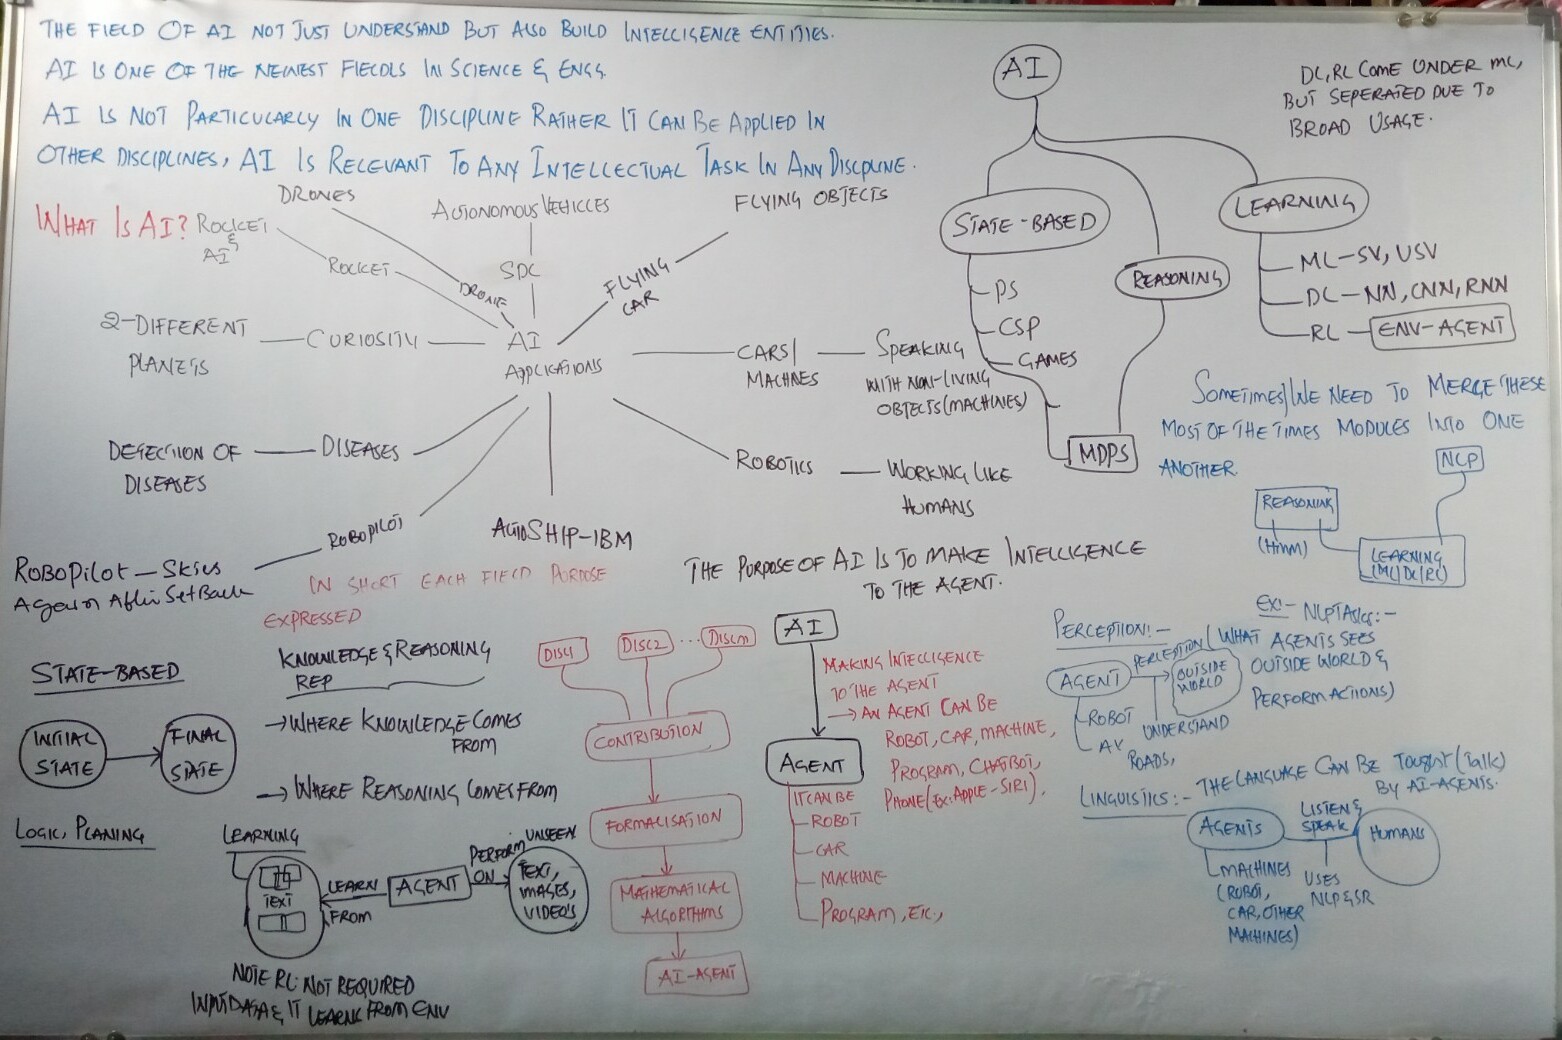 THE FIELD OF AI NOT JUST UNDERSTAND BUT ALSO BUILD INTELLIGENCE ENTITIES.
AI IS ONE OF THE NEWEST FIELDS IN SCIENCE & ENGG.
AI IS NOT PARTICULARLY IN ONE DISCIPLINE RATHER IT CAN BE APPLIED IN
OTHER DISCIPLINES, AI IS RELEVANT TO ANY INTELLECTUAL TASK IN ANY DISCPLINE.
WHAT IS AI?
DRONES
DRONE
ROCKET
&
AI
ROCKET
AUTONOMOUS VEHICLES
SDC
FLYING OBJECTS
FLYING
CAR
2-DIFFERENT
PLANETS
CURIOSITY
AI
APPLICATIONS
CARS/
MACHINES
SPEAKING
WITH NON-LIVING
OBJECTS (MACHINES)
DETECTION OF
DISEASES
DISEASES
ROBOTICS
WORKING LIKE
HUMANS
ROBOPILOT
ROBOPILOT - Skies
Again After Set Back
AUTOSHIP-IBM
IN SHORT EACH FIELD PURPOSE
EXPRESSED
AI
STATE-BASED
PS
CSP
GAMES
REASONING
MDPS
LEARNING
ML-SV, USV
DL-NN, CNN, RNN
RL
ENV-AGENT
DL, RL COME UNDER ML,
BUT SEPERATED DUE TO
BROAD USAGE.
SOMETIMES/WE NEED TO MERGE THESE
MOST OF THE TIMES MODULES INTO ONE
ANOTHER.
REASONING
(HMM)
NLP
LEARNING
(ML/DL/RL)
EX:- NLP TASKS:-
THE PURPOSE OF AI IS TO MAKE INTELLIGENCE
TO THE AGENT.
STATE-BASED
INITIAL
STATE
FINAL
STATE
KNOWLEDGE & REASONING
REP
→WHERE KNOWLEDGE COMES
FROM
→WHERE REASONING COMES FROM
LOGIC, PLANING
LEARNING
TEXT
LEARN
FROM
AGENT
PERFORM
ON
UNSEEN
TEXT,
IMAGES,
VIDEO'S
NOTE RL: NOT REQUIRED
INPUT DATA & IT LEARNS FROM ENV
DISC1
DISC2
...
DISCn
CONTRIBUTION
FORMALISATION
MATHEMATICAL
ALGORITHMS
AI-AGENT
AI
MAKING INTELLIGENCE
TO THE AGENT
→ AN AGENT CAN BE
ROBOT, CAR, MACHINE,
PROGRAM, CHATBOT,
PHONE (EX: APPLE-SIRI).
AGENT
IT CAN BE
ROBOT
CAR
MACHINE
PROGRAM, ETC.,
PERCEPTION:-
(WHAT AGENTS SEES
OUTSIDE WORLD &
PERFORM ACTIONS)
AGENT
PERCEPTION
OUTSIDE
WORLD
ROBOT
AV
UNDERSTAND
ROADS,
LINGUISTICS:-
THE LANGUAGE CAN BE Tought (Talk)
BY AI-AGENTS.
AGENTS
LISTEN &
SPEAK
HUMANS
MACHINES
(ROBOT,
CAR, OTHER
MACHINES)
USES
NLP & SR